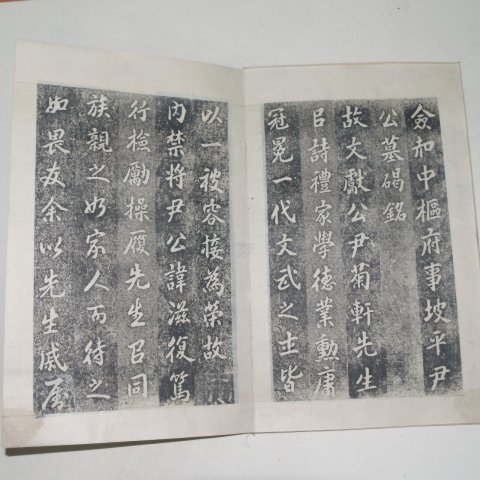 僉知中樞府事坡平尹
公墓碣銘
故文獻公尹菊軒先生
以詩禮家學德業勳庸
冠冕一代文武之士皆
以一被容接為榮故
內禁將尹公諱滋復篤
行檢勵操履先生以同
族親之如家人而待之
如畏友余以先生戚屬